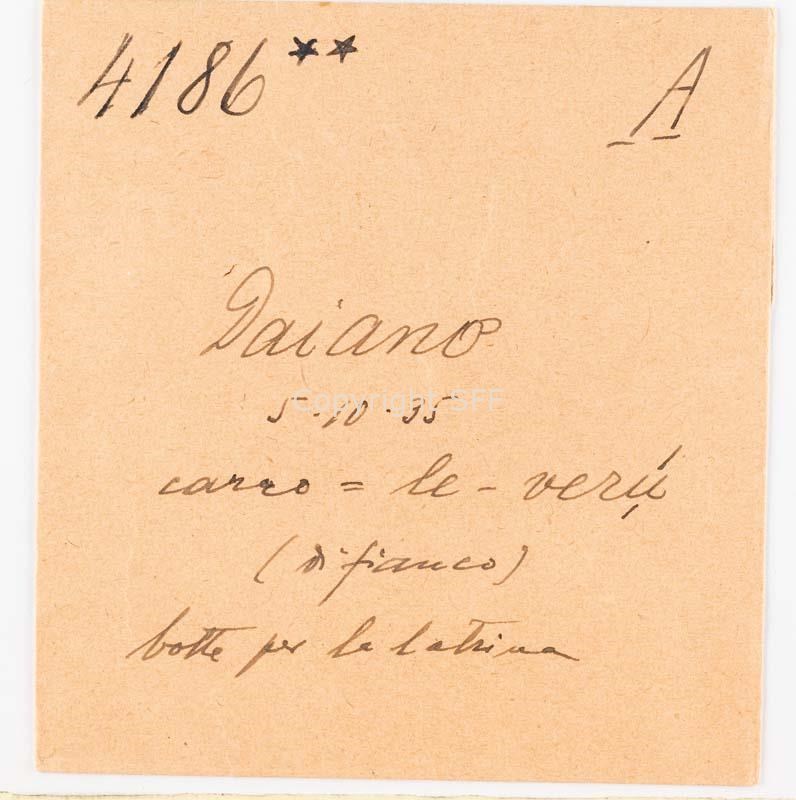 4186 ** A
Daiano
5·10·35
Copyright SFF
carro = le - verụ́
(di fianco)
botte per la latrina